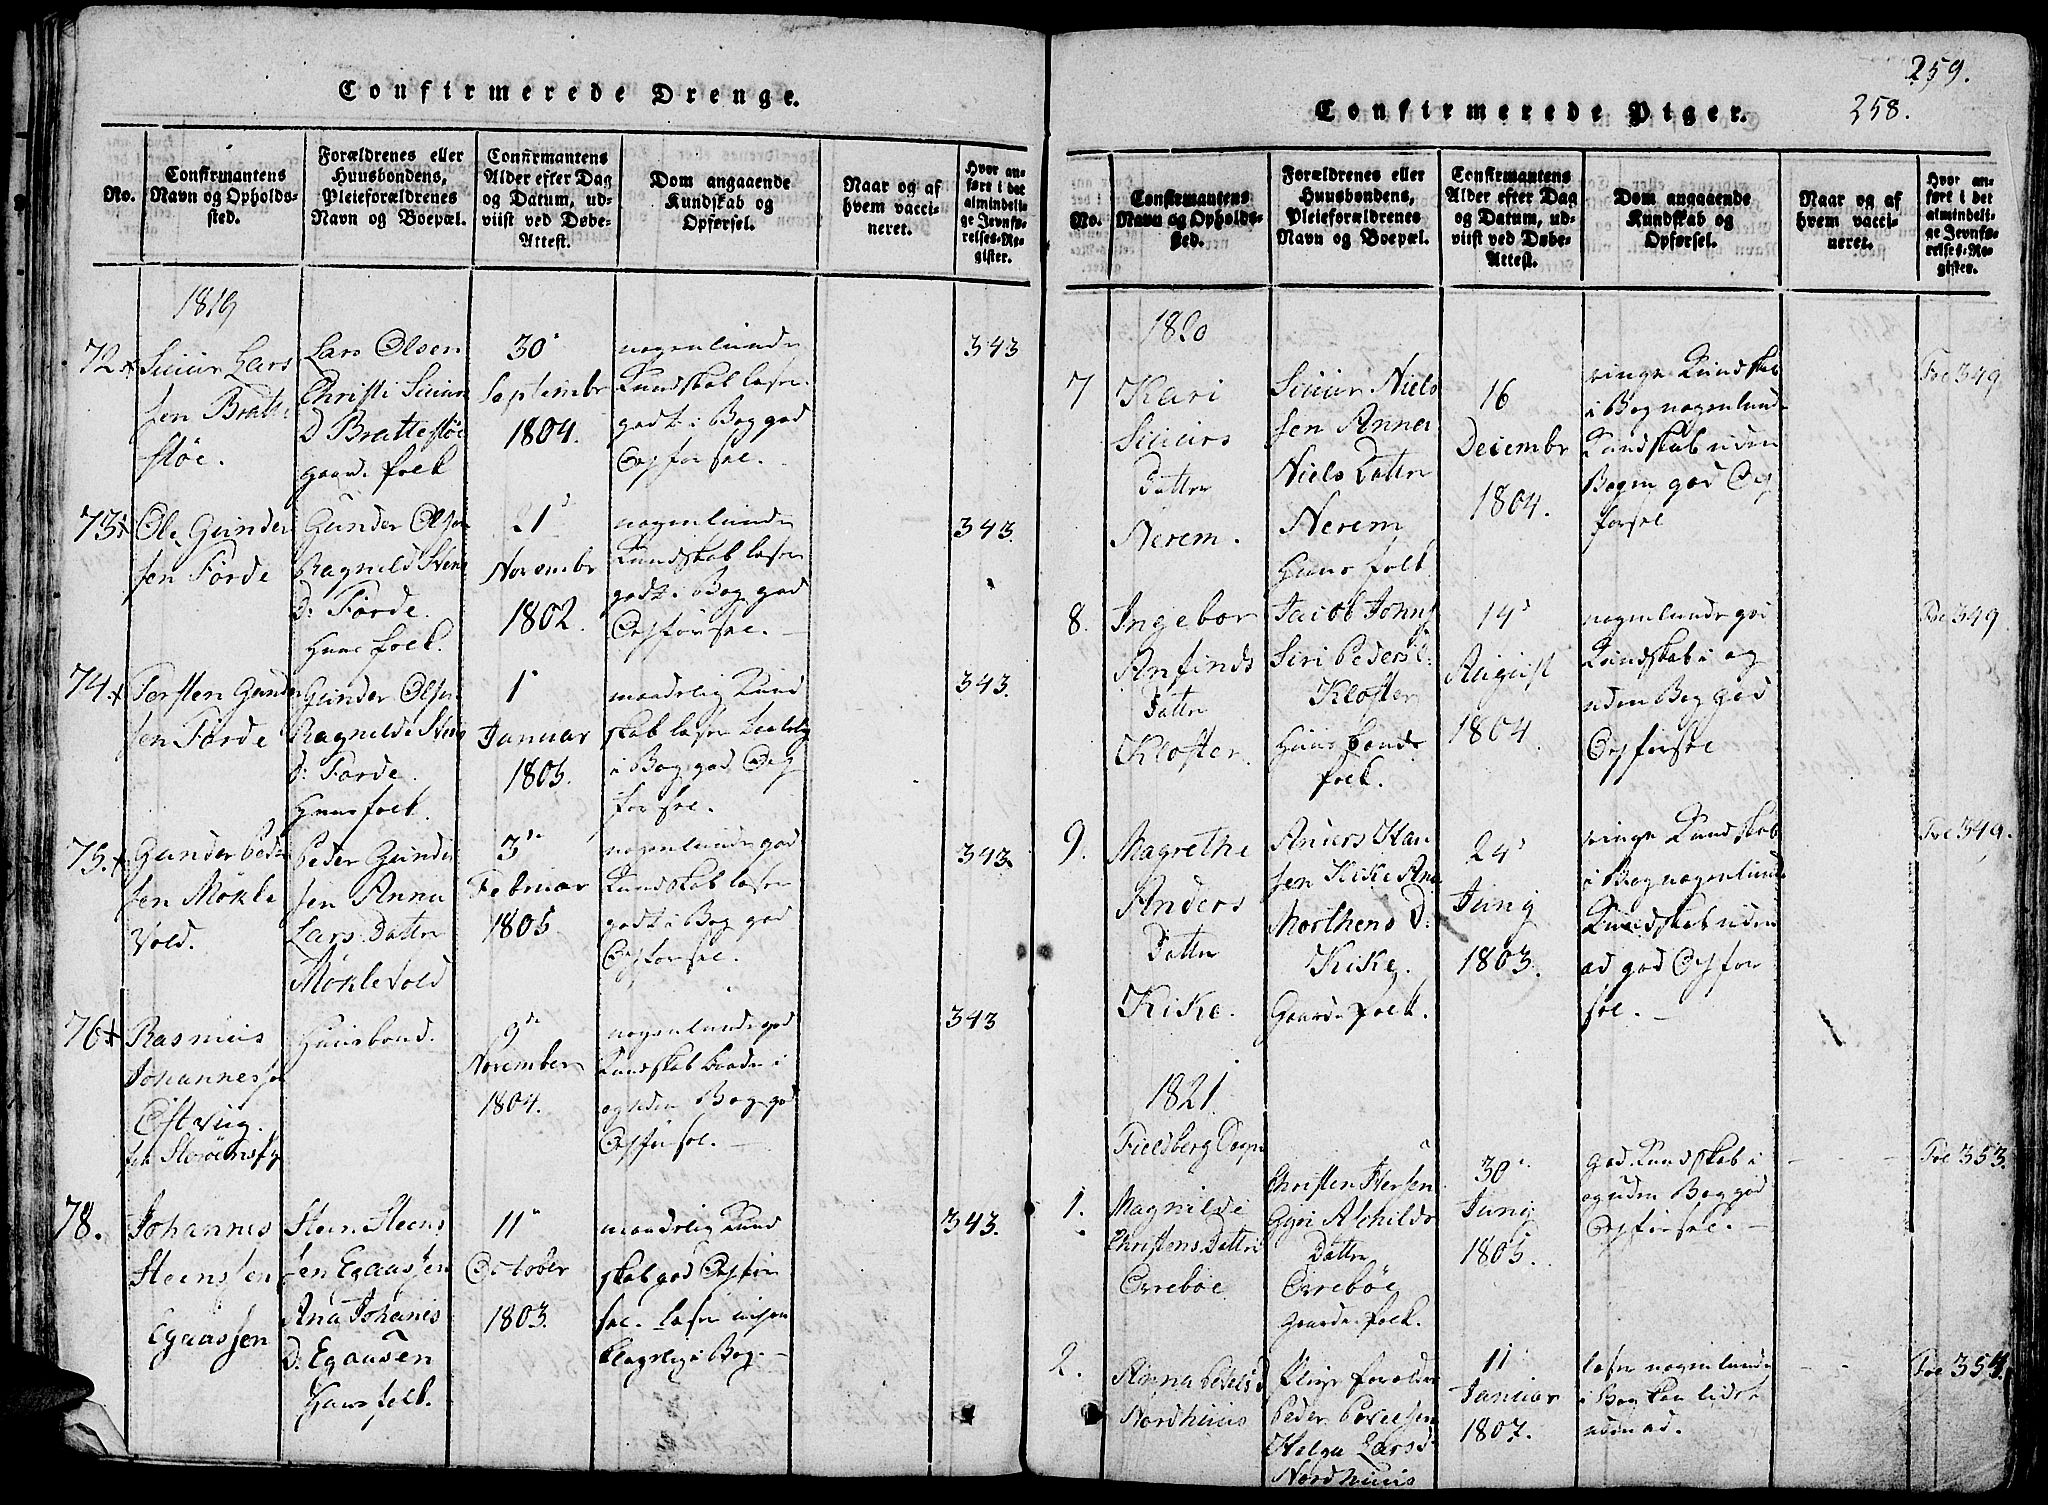 Confirmerede Drenge.
No.
Confirmantens
Navn og Opholds-
sted.
Forældrenes eller
Huusbondens,
Pleieforældrenes
Navn og Boepæl.
Confirmantens
Alder efter Dag
og Datum, ud-
viist ved Døbe-
Attest.
Dom angaaende
Kundskab og
Opførsel.
Naar og af
hvem vacci-
neret.
Hvor an-
ført i det
almindeli-
ge Jevnfø-
relses-Re-
gister.
1819
72
Siuur Lars
sen Bratte
støe.
Lars Olsen
Christi Siuurs
D Brattestøe
gaard. folk
30
Septembr
1804.
nogenlunde
Kundskab læser
godt i Bog god
Opførsel.
343
73
Ole Gunder
sen Førde
Gunder Olsen
Ragnild Stens
D: Førde.
Huus folk.
21
Novembr
1802.
nogenlunde
Kundskab læser
godt i Bog god
Opførsel. —
343.
74
Torsten Gunder
sen Førde
Gunder Olsen
Ragnilde Stens
d: Førde.
Huusfolk.
1
Januar
1805.
maadelig Kund
skab læser
i Bog god Op
førsel.
343.
75.
Gunder Peder
sen Møkle
Vold.
Peder Gunder
sen Anna
Lars Datter
Møklevold
3
Februar
1805
nogenlunde god
Kundskab læser
godt i Bog god
Opførsel.
343
76
Rasmus
Johannessen
Husbond.
9de
November
1804.
nogenlunde god
Kundskab baade i
og uden Bog god
Opførsel. —
343
78.
Johannes
Steenssen
Egaassen
Steen Steens
sen Egaassen
Ana Johanis
D: Egaasen
Huus folk.
11
October
1803.
maadelig Kund
skab god Opfør
sel. læser
i Bog. —
343.
259.
258.
Confirmerede Piger.
No.
Confirmantens
Navn og Opholds-
sted.
Forældrenes eller
Huusbondens,
Pleieforældrenes
Navn og Boepæl.
Confirmantens
Alder efter Dag
og Datum, ud-
viist ved Døbe-
Attest.
Dom angaaende
Kundskab og
Opførsel.
Naar og af
hvem vacci-
neret.
Hvor an-
ført i det
almindeli-
ge Jevnfø-
relses-Re-
gister.
1820
7
Kari
Siuurs
Datter
Nerem.
Siuur Niels
sen Anna
Niels Datter
Nerem
Huus folk
16
Decembr
1804.
ringe Kundskab
i Bog nogenlunde
Kundskab uden
Bogen god Op
førsel
Foe 349
8.
Ingebor
Anfinds
Datter
Kloster.
Jacob Johns
Siri Peders D:
Kloster
Huusbonds
folk.
14
August
1804.
nogenlunde god
Kundskab i og
uden Bog god
Opførsel
Foe 349
9.
Magrethe
Anders
Datter
Kike.
Anders Han
sen Kike Ana
Morthens D:
Kike.
Gaarde folk.
24
Junij
1803.
ringe Kundskab
i Bog nogenlunde
Kundskab uden
ad god Opfør
sel. —
Foe 349.
1821.
Fieldberg Sogn
1.
Magnilde
Christens Datter
Orrebøe
Christen Iversen
Gyri Aschilds
Datter
Orrebøe
Gaarde folk.
30
Junij
1805.
god Kundskab i
og uden Bog god
Opførsel. —
Foe 353.
2.
Anna Povelsd
Nordhuus
Pleie forældre
Peder Povelsen
Helga Larsd:
Nordhuus
11
Januar
1807.
læser nogenlunde
i Bog kan lidet
udenad.
Foe 354.